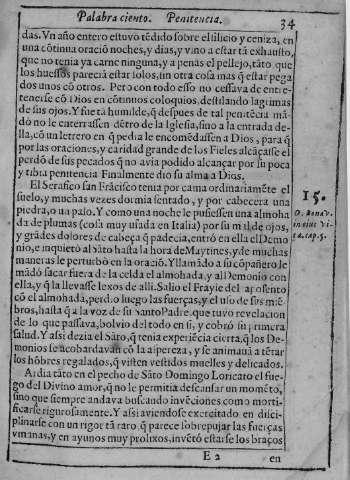 Palabra ciento. Penitencia. 34
das. Vn año entero estuvo tẽdido sobre el silicio y ceniza, en
vna cõtinua oració noches, y dias, y vino a estar tã exhausto,
que no tenia ya carne ninguna, y a penas el pellejo, tãto que
los huessos parecia estar solos, sin otra cosa mas q̃ estar pega
dos vnos cõ otros. Pero con todo esso no cessava de entre-
tenerse cõ Dios en cõtinuos coloquios, destilando lagrimas
de sus ojos. Y fue tã humilde, q̃ despues de tal penitẽcia mã-
dó no le enterrassen dẽtro de la Iglesia, sino a la entrada de-
lla, cõ vn letrero en q̃ pedia le encomẽdassen a Dios, para q̃
por las oraciones, y caridad grande de los Fieles alcãçasse el
perdõ de sus pecados q̃ no avia podido alcançar por su poca
y tibia penitencia Finalmente dio su alma a Dios.
El Serafico san Frãcisco tenia por cama ordinariamẽte el
suelo, y muchas vezes dormia sentado, y por cabecera vna
piedra, o vn palo. Y como vna noche le pusiessen vna almoha
da de plumas (cosa muy vsada en Italia) por su mal de ojos,
y grãdes dolores de cabeça q̃ padecia, entró en ella el Demo
nio, e inquietó al sãto hasta la hora de Maytines, y de muchas
maneras le perturbó en la oració. Y llamãdo a su cõpañero le
mãdó sacar fuera de la celda el almohada, y al Demonio con
ella, y q̃ la llevasse lexos de alli. Salio el Frayle del aposento
cõ el almohada, perdio luego las fuerças, y el vso de sus miẽ-
bros, hasta q̃ a la voz de su Santo Padre que tuvo revelacion
de lo que passava, bolvio del todo en si, y cobró su primera
salud. Y assi dezia el Sãto, q̃ tenia experiẽcia cierta, q̃ los De-
monios se acobardavan cõ la aspereza, y se animavã a tẽtar
los hõbres regalados, q̃ visten vestidos muelles y delicados.
Ardia tãto en el pecho de Sãto Domingo Loricato el fue-
go del Divino amor, q̃ no le permitia descansar vn momẽto,
sino que siempre andava buscando invẽciones como morti-
ficarse rigurosamente. Y assi aviendose exercitado en disci-
plinarse con vn rigor tã raro, q̃ parece sobrepujar las fuerças
vmanas, y en ayunos muy prolixos, invẽtó estarse los braços
E 2 en
15.
O. Bonav.
in eius vi-
ta. cap. 5.